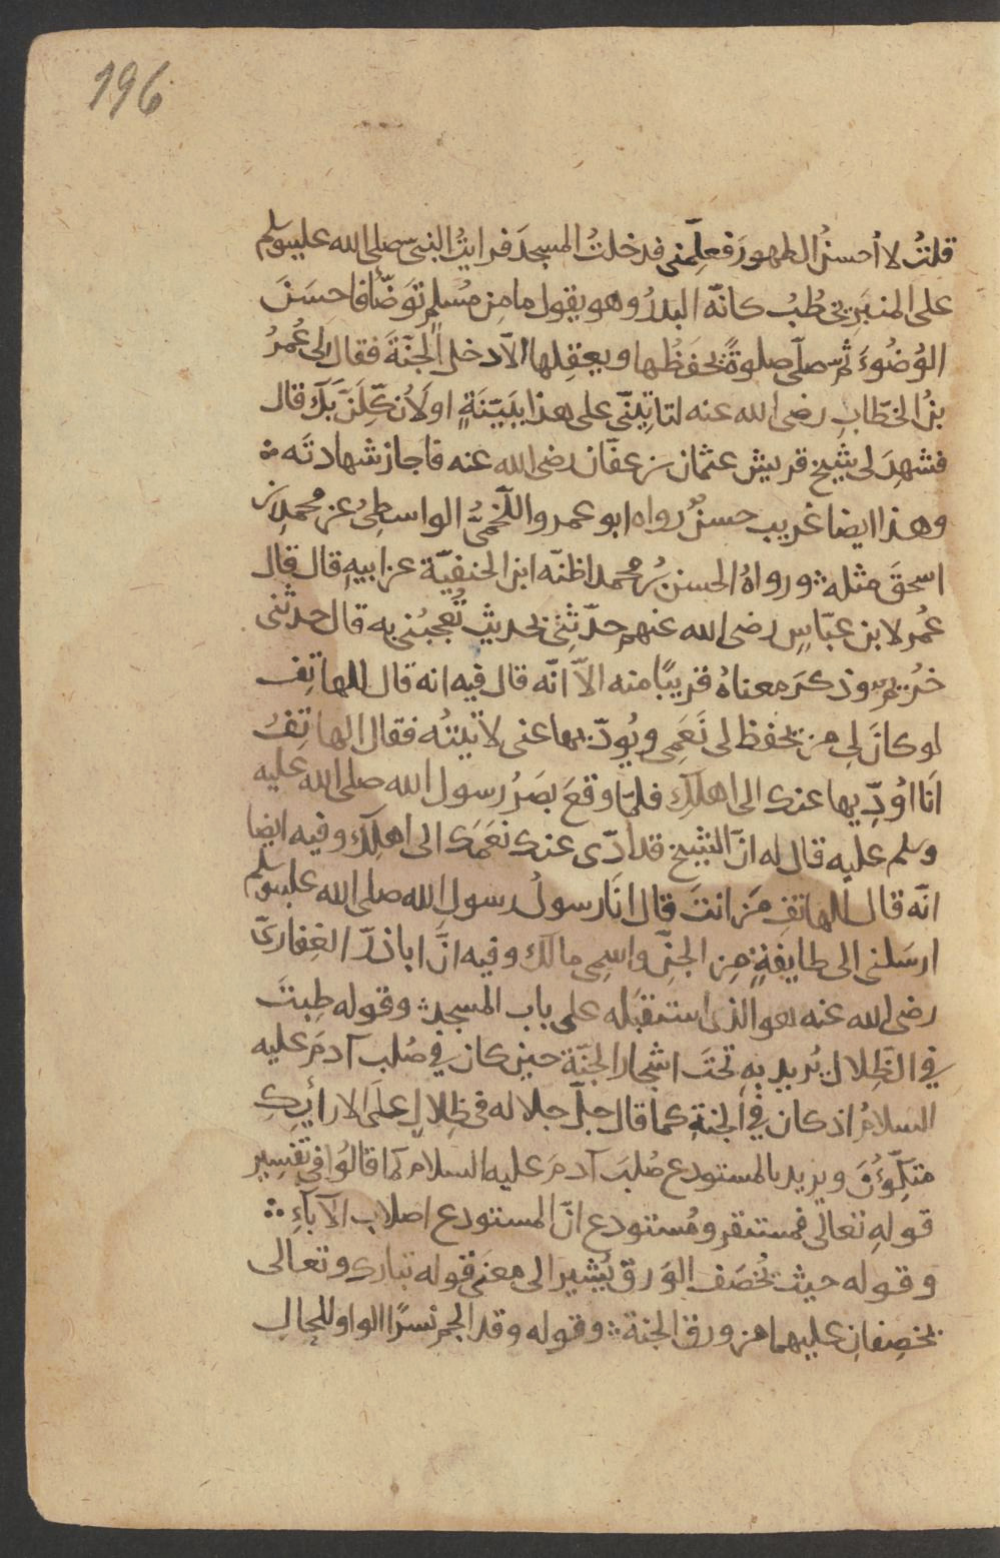 196
قلتُ لا أحسنُ الطهورَ فعلِّمنى فدخلتُ المسجدَ فرايتُ النبى صلى الله عليه وسلم
على المنبَرِ يخطُبُ كانّه البدرُ وهو يقول ما مِن مُسْلِمٍ توَضّأ فاحسَنَ
الوُضُوءَ ثم صلّى صلوةً يحفَظُها ويعقِلها الاّ دخل الجنّةَ فقال لى عُمَرُ
بنُ الخطّابِ رضى الله عنه لتاتِيَنّى على هذا ببَيّنَةٍ او لَأُنكِّلَنَّ بَكَ قال
فشهِدَ لى شيخ قريش عثمان بن عفّان رضى الله عنه فاجاز شهادتَه ؞
وهذا ايضا غريب حسنٌ رواه ابو عمرو اللَّخْمىُّ الواسطِىُّ عن محمد بن
اسحقَ مثله ؞ ورواهُ الحسن بنُ محمد اظنّه ابن الحنفيّة عن ابيهِ قال قال
عُمر لابن عبّاسٍ رضى الله عنهم حدّثنِى بحديثٍ تُعجبُنى به قال حدثنى
خُريم وذكرَ معناهُ قريبًا منه الاّ انّه قال فيه انه قال للهاتِف
لو كانَ لِى من يحفظ لى نَعَمِى ويُودّيها عنى لاتيتُه فقال الهاتِفُ
اَنا اؤدِّيها عنك الى اهلِكَ فلمّا وقعَ بصَرُ رسول الله صلى الله عليه
وسلم عليه قال له انّ الشيخ قد ادّى عنك نعَمَك الى اهلِكَ وفيه ايضا
انّه قال للهاتفِ مَن انتَ قال انَا رسولُ رسولِ الله صلى الله عليه وسلم
ارسَلنى الى طايفةٍ مِن الجنِّ واسمِى مالك وفيه انَّ ابا ذرّ الغِفارىّ
رضى الله عنه هو الذى استقبَله على باب المسجد ؞ وقوله طِبتَ
فى الظِلال يُريد بهِ تحتَ اشجار الجنّة حين كان فى صُلب آدمَ عليه
السلامُ اذ كان فى الجنةِ كما قال جلّ جلاله فى ظِلالٍ علَى الارائِكِ
متكِّؤنَ ويريد بالمستودع صُلبَ آدمَ عليه السلام كما قالوُا فى تفسِيرِ
قولهِ تعالى فمستقر ومُستودع انّ المستودع اصلاب الآباءِ ؞
وقوله حيث يُخصَف الوَرق يُشير الى معنَى قوله تبارك وتعالى
يخصِفانِ عليهما من ورق الجنة ؞ وقوله وقد الجم نسرًا الواو للحالِ